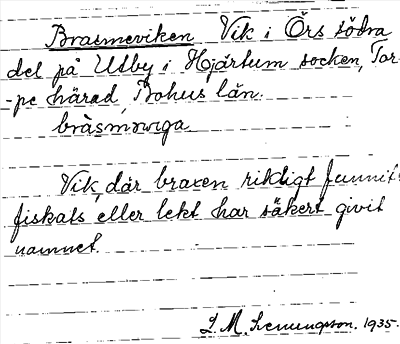 Brasmeviken Vik i Örs södra
del på Utby i Hjärtum socken, Tor-
-pe härad, Bohus län.
Vik, där braxen rikligt funnits
fiskats eller lekt har säkert givit
namnet.
L. M. 1935.